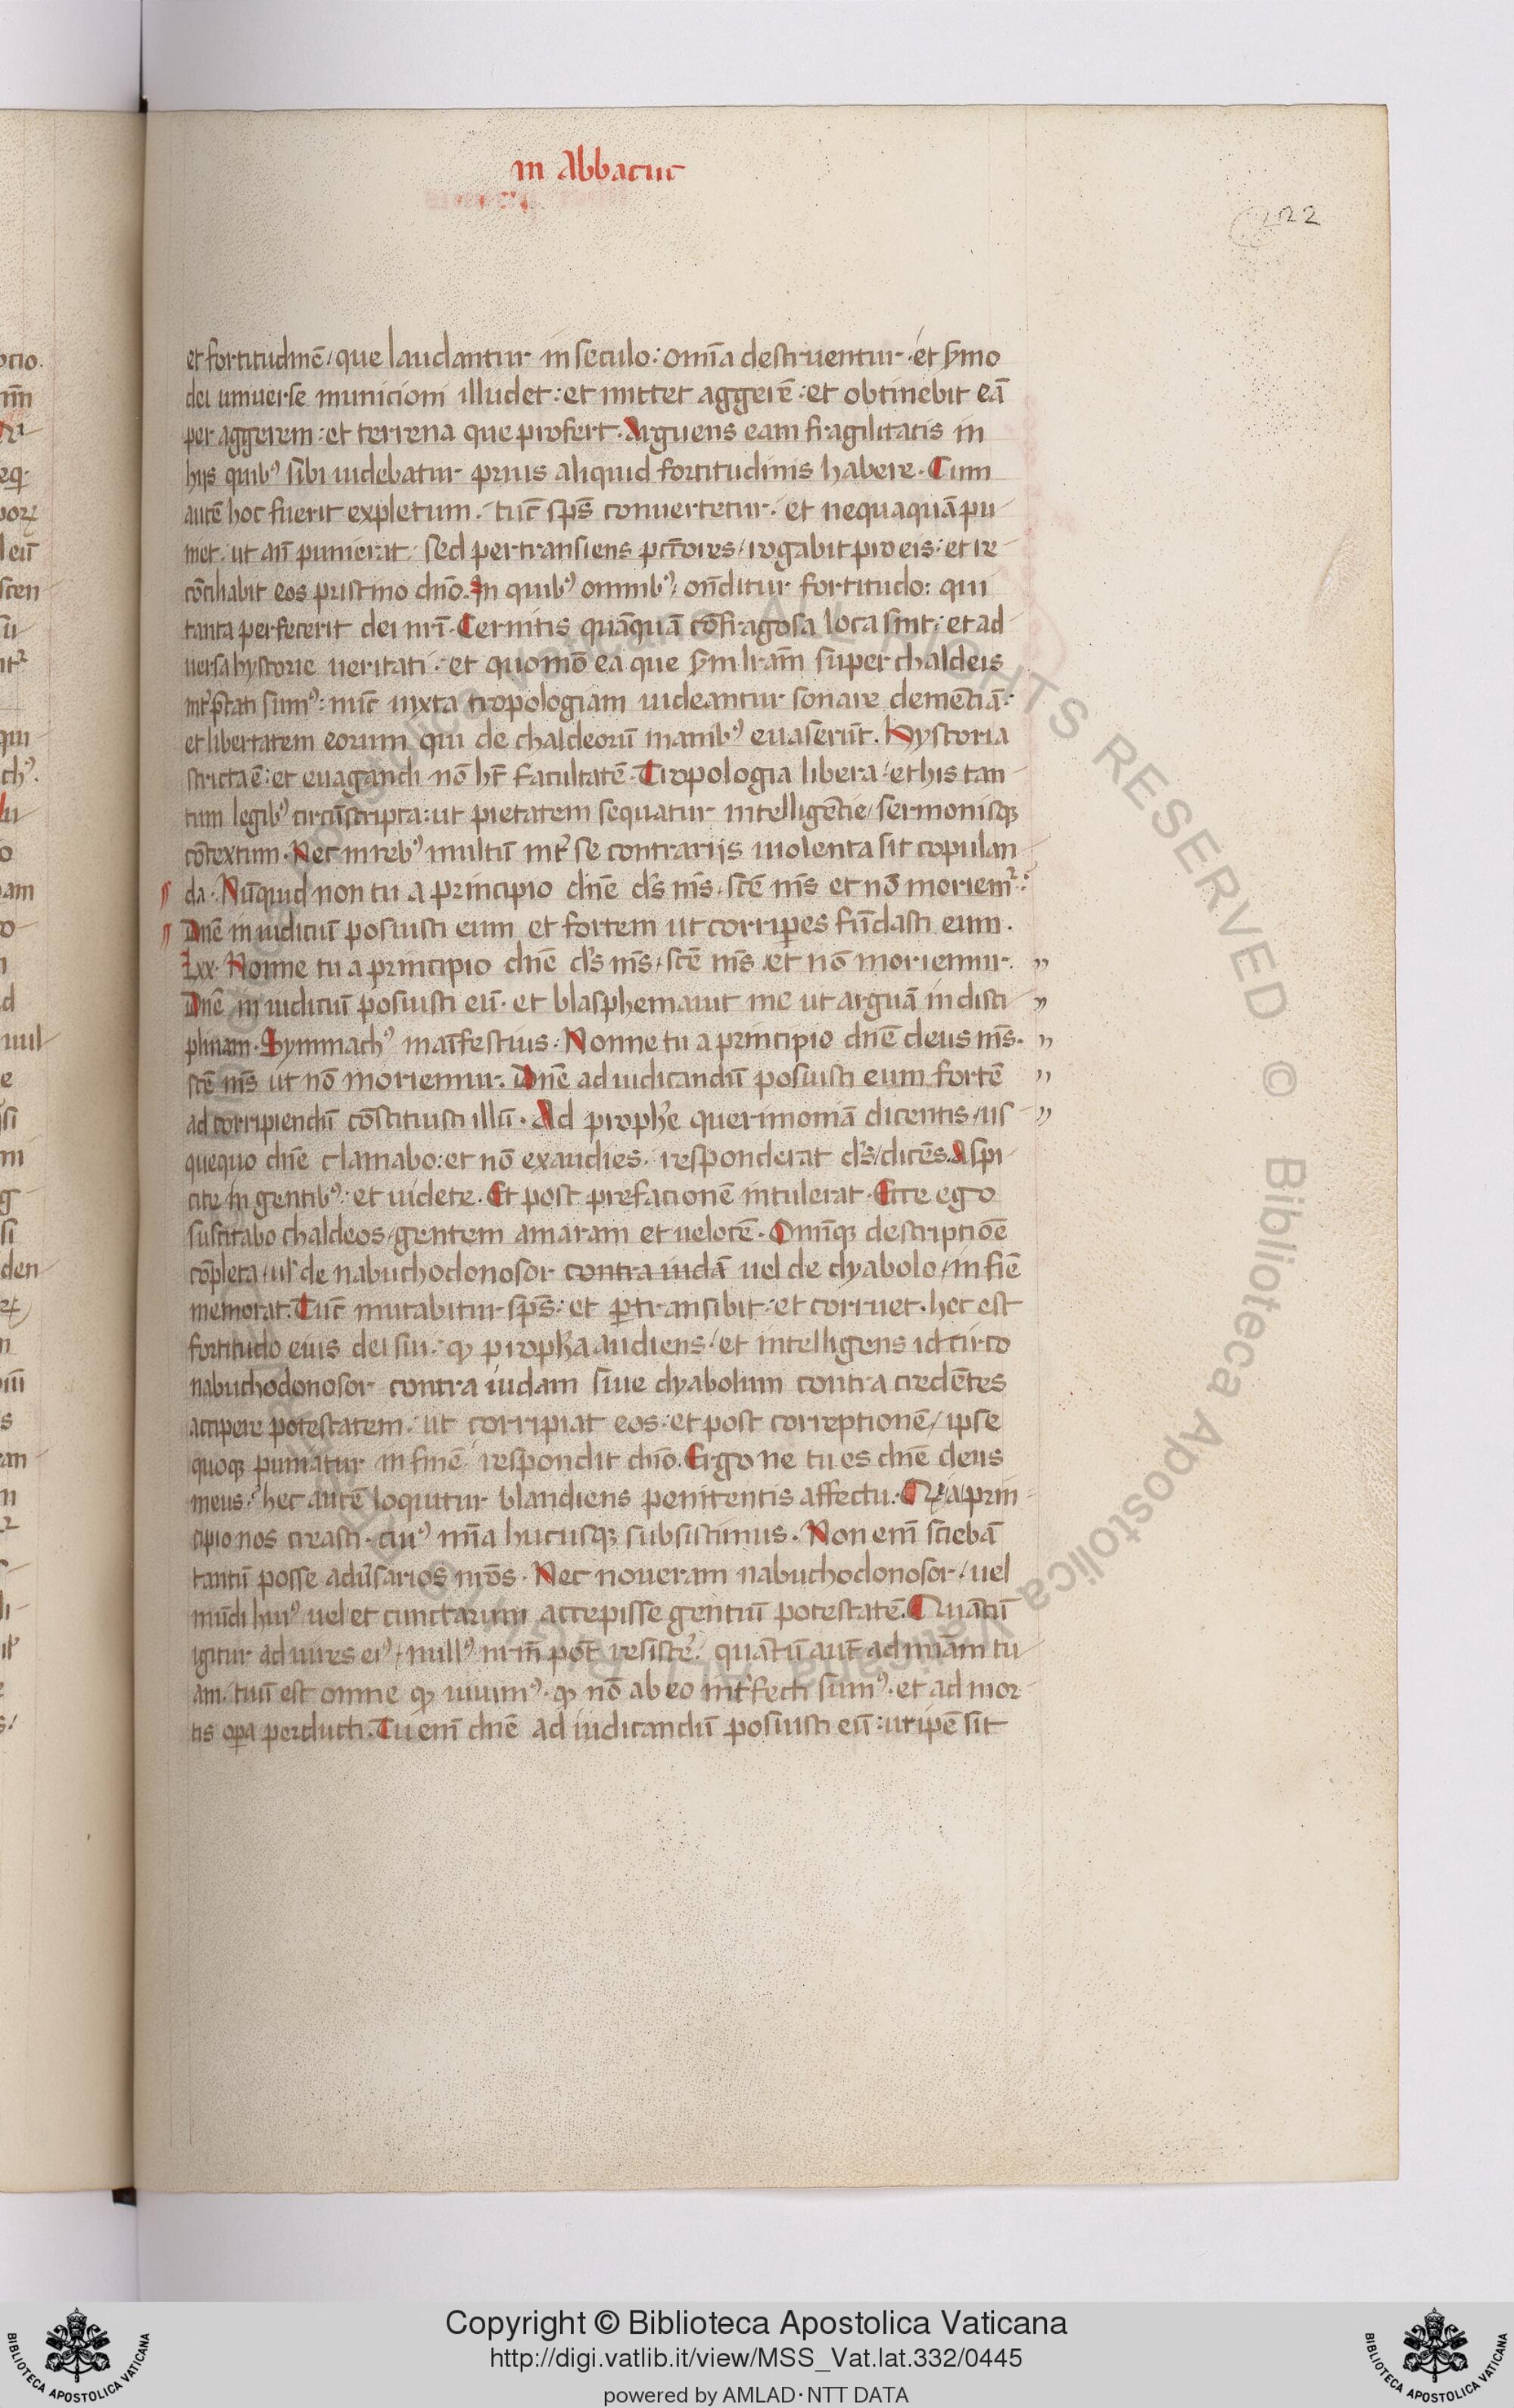 in Abbacuc
222
et fortitudinē / que laudantur in seculo : omīa destruentur . et ẜmo
dei uniuerse municioni illudet : et mittet aggerē : et obtinebit eā
per aggerem : et terrena que profert . Arguens eam fragilitatis in
hijs quibꝰ sibi uidebatur prius aliquid fortitudinis habere . Cum
autē hoc fuerit expletum . tuc̄ sp̄s conuertetur . et nequaquā pu
niet . ut an̄ punierat . sed pertransiens pctōres / rogabit pro eis : et re
cōciliabit eos pristino dn̄o . In quibꝰ omnibꝰ / on̄ditur fortitudo : qui
tanta perfecerit dei nr̄i . Cernitis quāquā cōfragosa loca sint : et ad
uersa hystorie ueritati . et quomō ea que ẜm lrām super chaldeis
int̓p̄tati sumꝰ : nūc iuxta tropologiam uideantur sonare demētiā :
et libertatem eorum qui de chaldeorū manibꝰ euaserūt . Hystoria
stricta ē : et euagandi nō hr̄ facultatē . Tropologia libera / et his tan
tum legibꝰ circūscripta : ut pietatem sequatur intelligētie / sermonisqꝫ
cōtextum . Nec in rebꝰ multū int̓ se contrarijs uiolenta sit copulan
da . Nūquid non tu a principio dn̄e ds̄ ms̄ . scē ms̄ et nō moriemᷣ :
Dn̄e in iudiciū posuisti eum et fortem ut corriꝑes fūdasti eum .
Lxx . Nonne tu a principio dn̄e ds̄ ms̄ / scē ms̄ . et nō moriemur . ”
Dn̄e in iudiciū posuisti eū . et blasphemauit me ut arguā in disci ”
plinam . Symmachꝰ manīfestius . Nonne tu a principio dn̄e deus ms̄ . ”
scē ms̄ ut nō moriemur . Dn̄e ad iudicandū posuisti eum fortē ”
ad corripiendū cōstituisti illū . Ad prophe querimoniā dicentis / us ”
quequo dn̄e clamabo : et nō exaudies . responderat ds̄ / dicēs . Aspi
cite in gentibꝰ : et uidete . Et post prefacionē intulerat . Ecce ego
suscitabo chaldeos / gentem amaram et uelocē . Omīqꝫ descriptiōe
cōpleta / ul̓ de nabuchodonosor contra iudā uel de dyabolo / in fiē
memorat . Tuc̄ mutabitur sp̄s : et ꝑtransibit : et corruet . hec est
fortitudo eius dei sui . qꝫ propha audiens / et intelligens idcirco
nabuchodonosor contra iudam siue dyabolum contra credētes
accipere potestatem . ut corripiat eos . et post correptionē / ipse
quoqꝫ puniatur in finē respondit dn̄o . Ergo ne tu es dn̄e deus
meus . hec autē loquitur blandiens penitentis affectu . Qui a prin
cipio nos creasti . cuiꝰ mīa hucusqꝫ subsistimus . Non enī sciebā
tantū posse adūsarios nr̄os . Nec noueram nabuchodonosor / uel
mūdi huiꝰ uel et cunctarum accepisse gentiū potestatē . Quātū
igitur ad uires eiꝰ / nullꝰ nr̄m̄ pōt resistē . quātū aut̄ ad mīam tu
am . tuū est omne qꝫ uiuimꝰ . qꝫ nō ab eo int̓fecti sumꝰ . et ad mor
tis oꝑa perducti . Tu enī dn̄e ad iudicandū posuisti eū : ut ipē sit
Copyright © Biblioteca Apostolica Vaticana
http://digi.vatlib.it/view/MSS_Vat.lat.332/0445
powered by AMLAD·NTT DATA